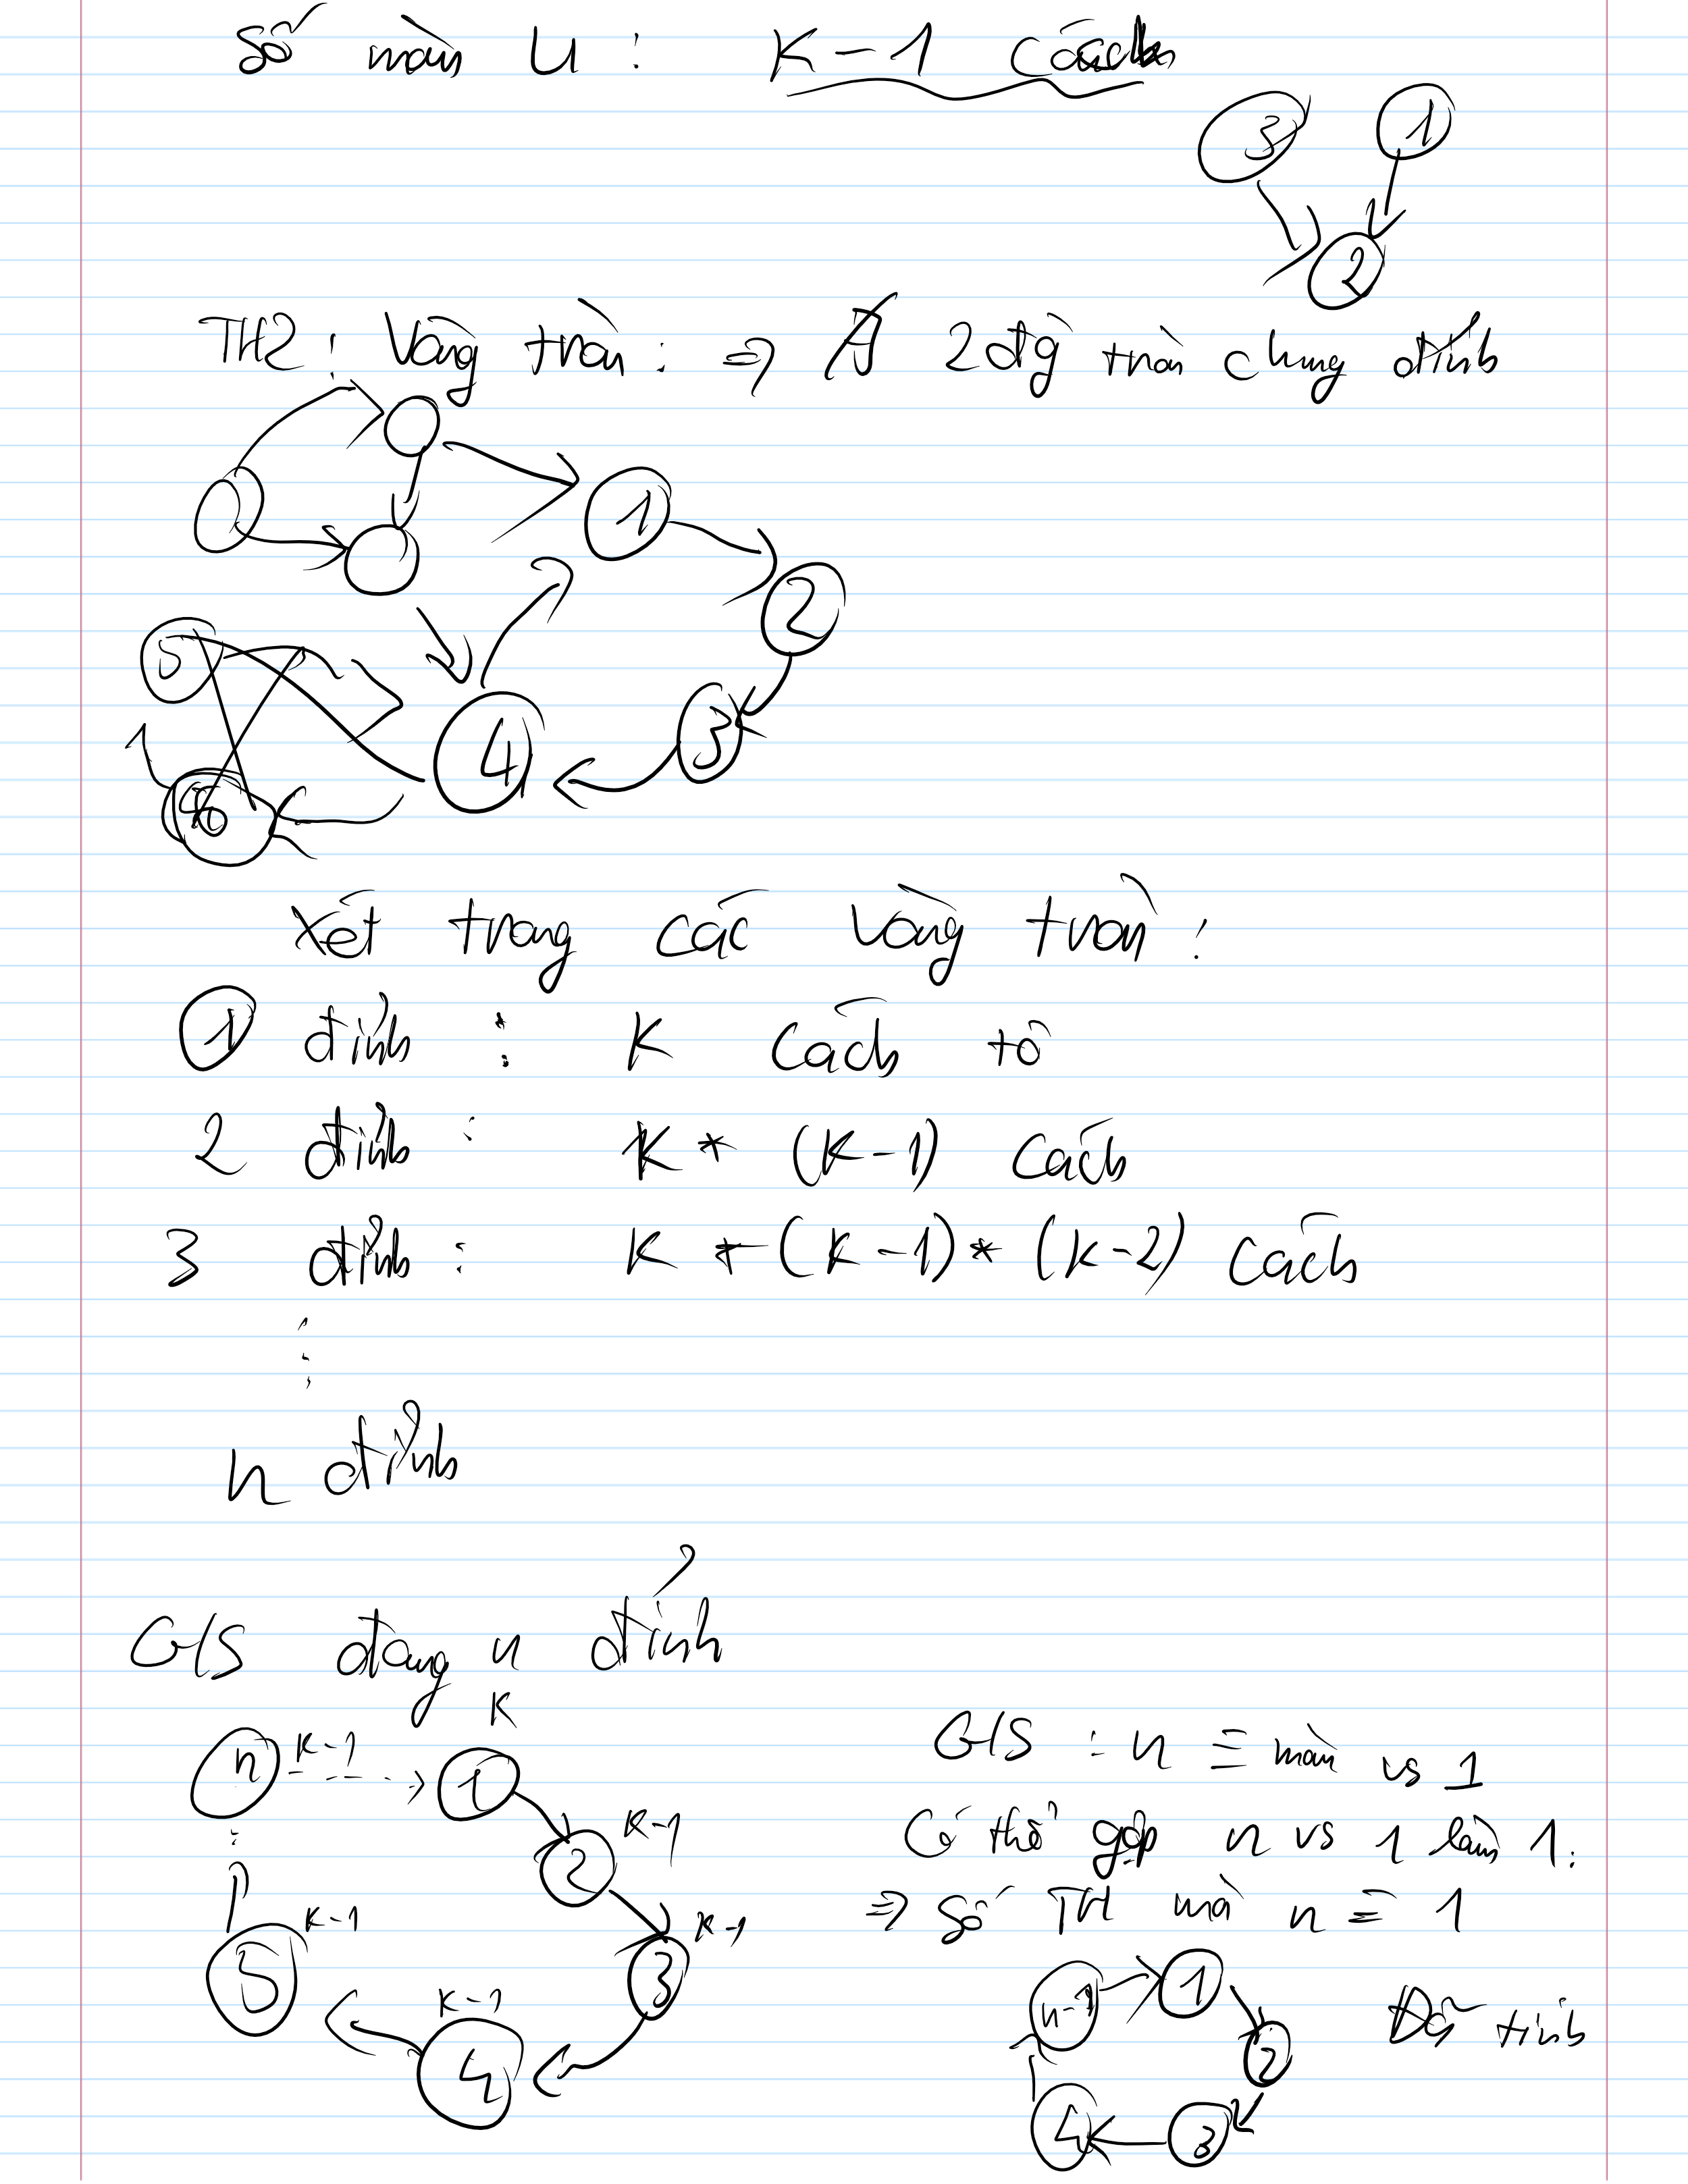 Số màu U : K-1 cách
3 1
2
TH2: Vòng tròn: => ∄ 2 đg tròn chung đỉnh
1
2
5
3
4
6
Xét trong các vòng tròn:
1 đỉnh : K cách tô
2 đỉnh : K * (K-1) cách
3 đỉnh : K * (K-1) * (K-2) cách
n đỉnh
G/S đang u đỉnh
K
n K-1 1
K-1
2
K-1
K-1
3
5
K-1
4
G/S : n ≡ màu vs 1
Có thể gộp n vs 1 làm 1.
=> Số TH mà n ≡ 1
n-1 1
2
Đã tính
4 3